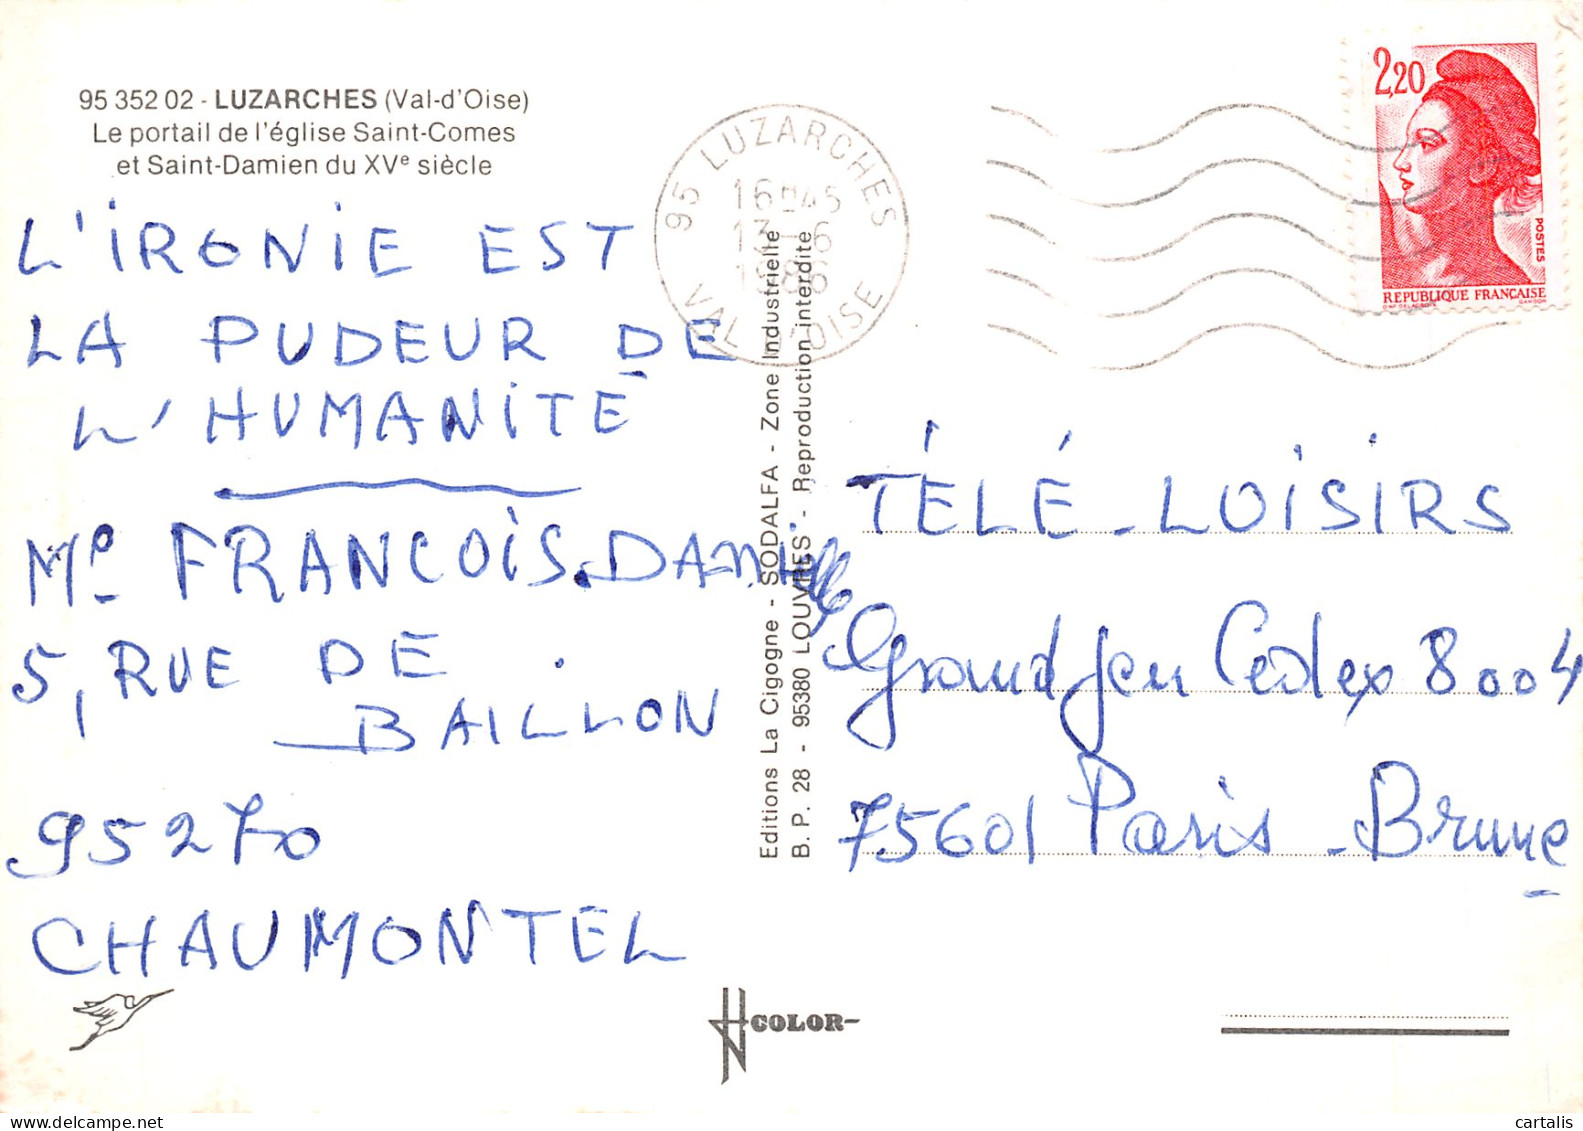 95 352 02 - LUZARCHES (Val-d'Oise)
Le portail de l'église Saint-Comes
et Saint-Damien du XVe siècle
L'IRONIE EST
LA PUDEUR DE
L'HUMANITÉ
Me FRANCOIS. DANIELLE
5, RUE DE
BAILLON
95270
CHAUMONTEL
95 LUZARCHES
16H45
13-6
1986
VAL D'OISE
Editions La Cigogne - SODALFA - Zone Industrielle
B. P. 28 - 95380 LOUVRES - Reproduction interdite
2,20
POSTES
REPUBLIQUE FRANÇAISE
TÉLÉ-LOISIRS
Grand Jeu Cedex 8004
75601 Paris-Brune
COLOR
cartalis